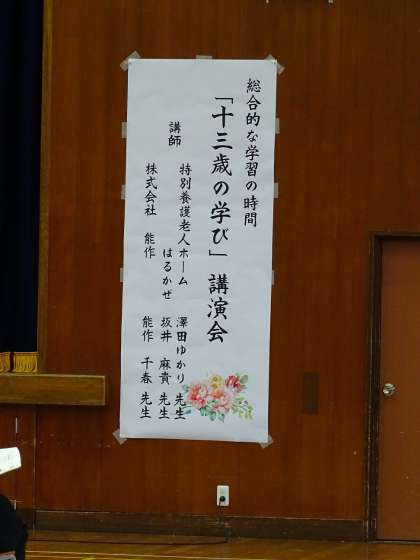 総合的な学習の時間
「十三歳の学び」講演会
講師
特別養護老人ホーム 澤田ゆかり 先生
はるかぜ 坂井 麻貴 先生
株式会社 能作 能作 千春 先生